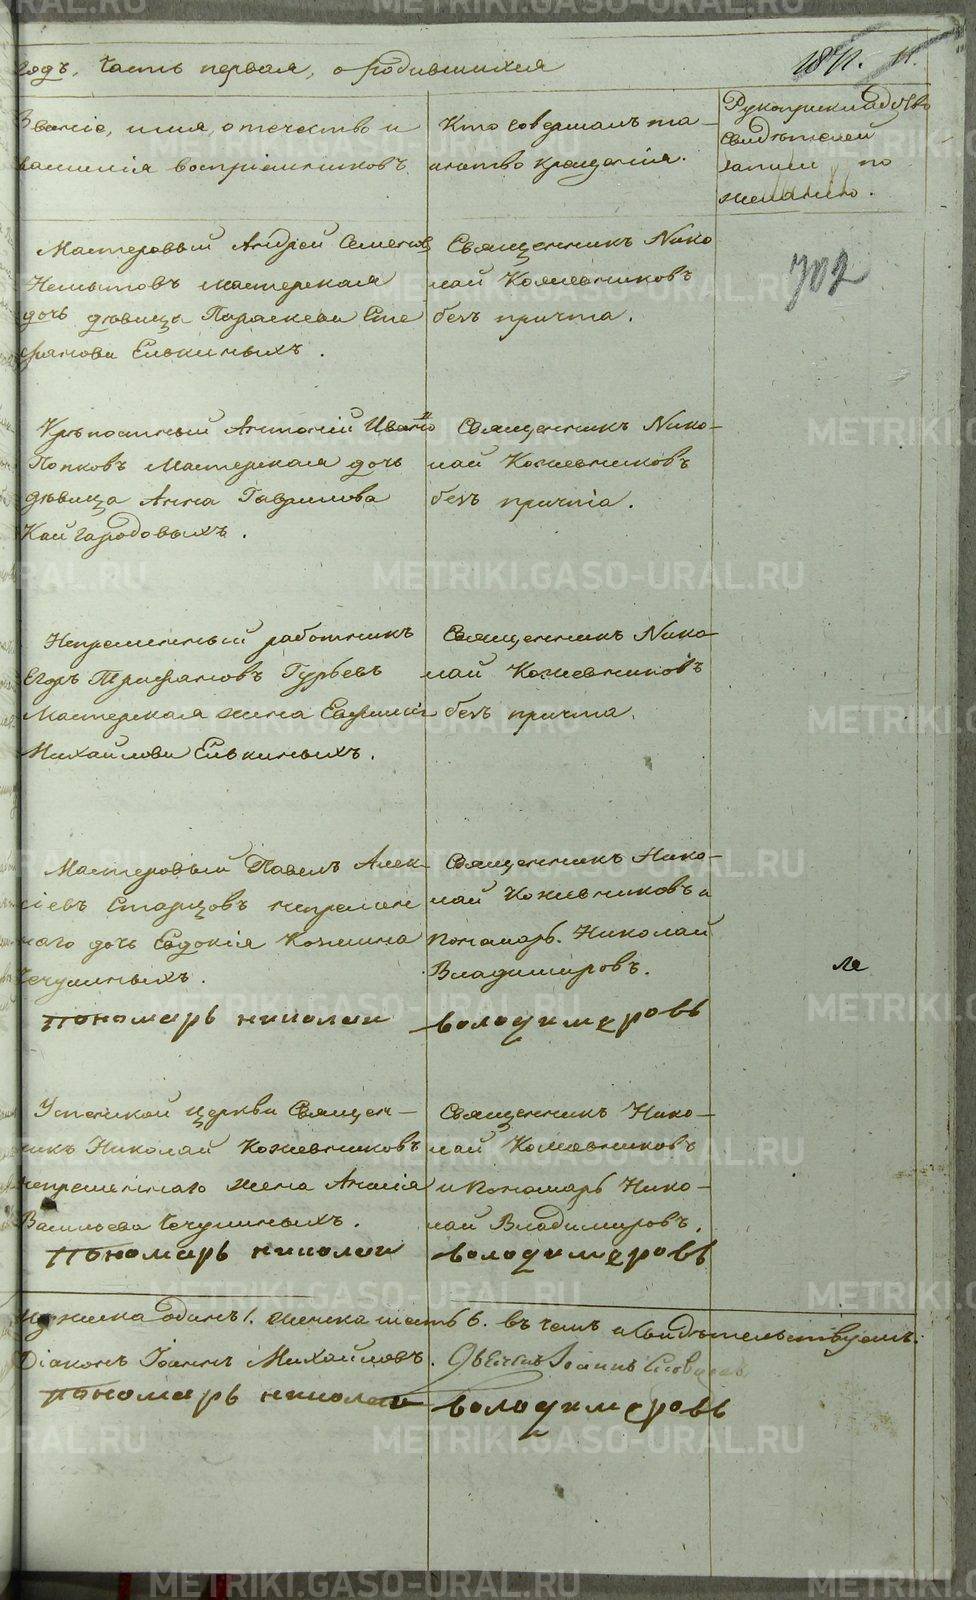 годъ, Часть первая, о родившихся
Званіе, имя, отчество и
восприемниковъ.
Кто совершалъ та-
инство крещенія.
Рукоприкладство
свидѣтелей
записи по
желанію.
702
Мастеровый Андрей Семеновъ
мастерская
дочь дѣвица Параскева Сте
фанова Елькиныхъ.
Священникъ Нико
лай Кожевниковъ
безъ причта.
Крѣпостный Антоній Ивано
Попковъ мастерская дочь
дѣвица Анна Гаврилова
Кайгородовыхъ.
Священникъ Нико-
лай Кожевниковъ
безъ причта.
Непременный работникъ
Егоръ Трифановъ Гурьевъ
мастерская жена Евфимія
Михайлова Елькиныхъ.
Священникъ Нико-
лай Кожевниковъ
безъ причта.
Мастеровый Павелъ Алек-
сіевъ Старцовъ непремен
наго дочь Евдокія Козмина
Чечулиныхъ.
Священникъ Нико-
лай Кожевниковъ и
Пономарь Николай
Владимировъ.
ля
пономарь николаи володимеровъ
Успенской церкви Священ-
никъ Николай Кожевниковъ
непременнаго жена Анисія
Васильева Чечулиныхъ.
Священникъ Нико-
лай Кожевниковъ
и Пономарь Нико-
лай Владимировъ.
пономарь николаи володимеровъ
мужеска одинъ 1. женска шесть 6. въ чемъ и свидѣтельствуемъ:
Діаконъ Іоаннъ Михайловъ. Іоаннъ
пономарь николаи володимеровъ
METRIKI.GASO-URAL.RU